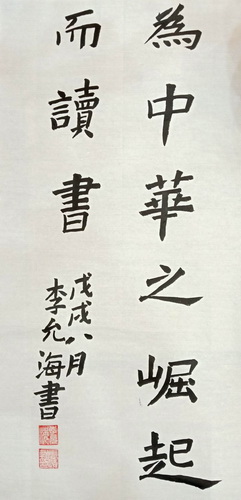 為中華之崛起
而讀書
戊戌八月
李允海書